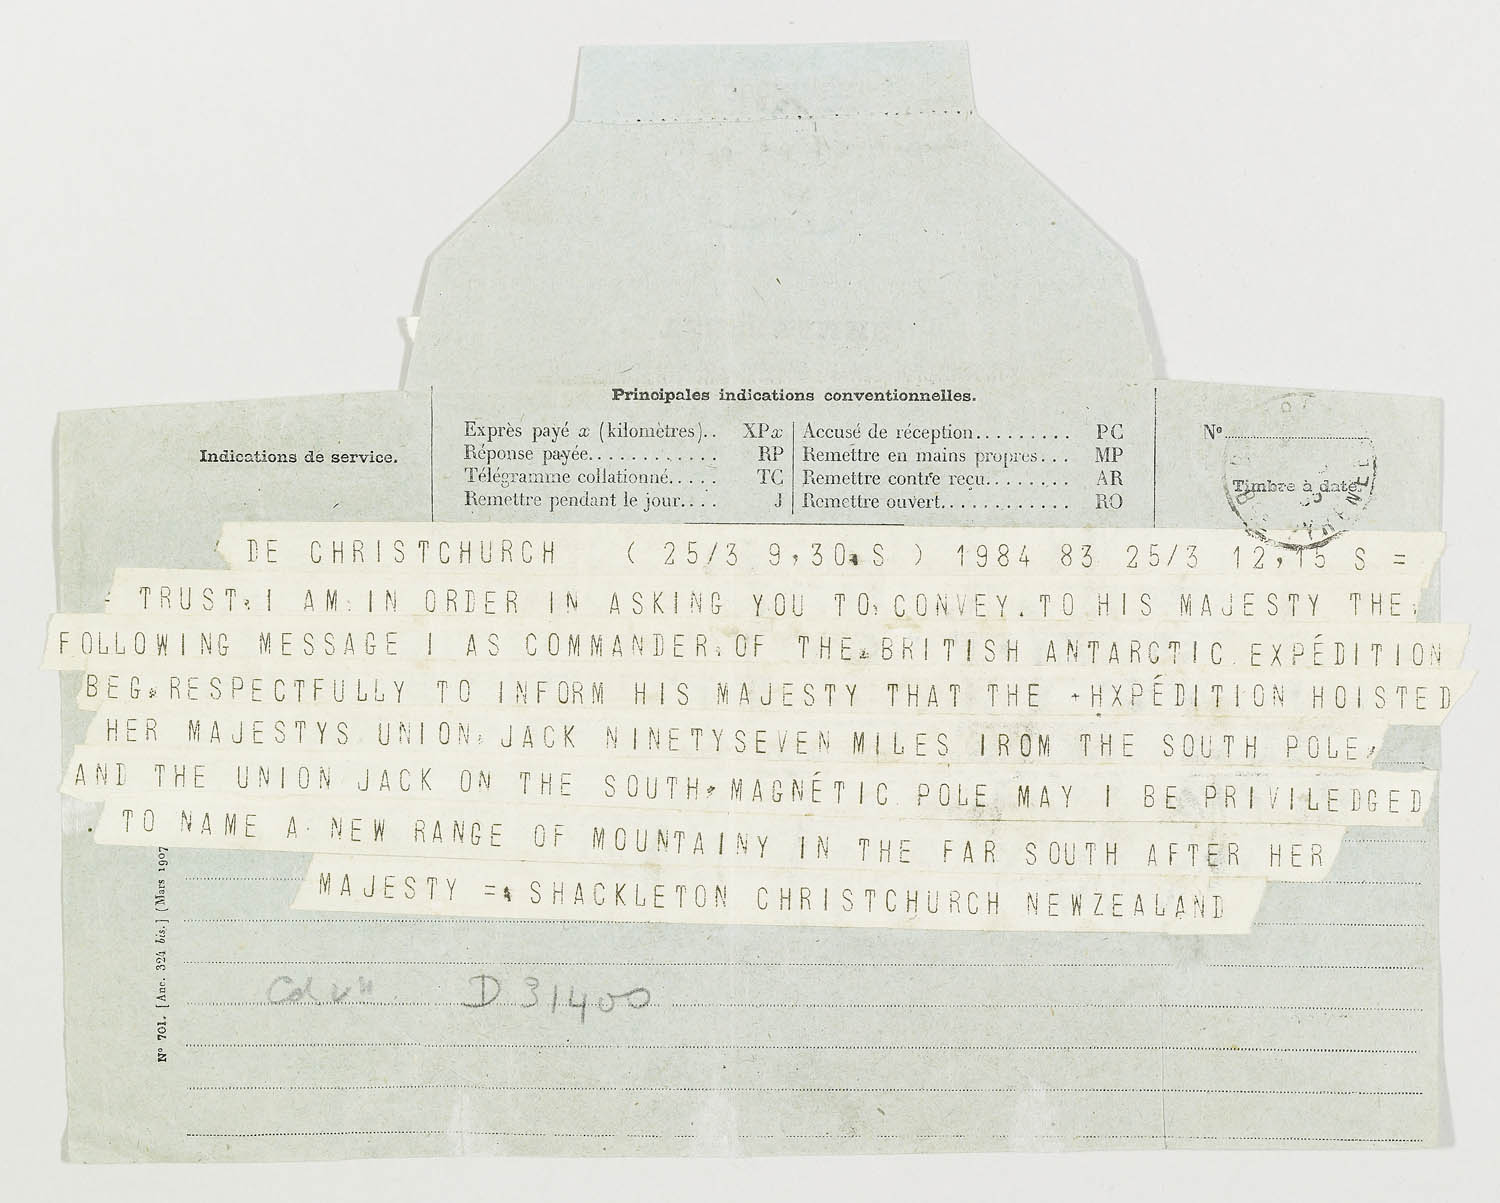 Principales indications conventionnelles.
Indications de service.
Exprès payé x (kilomètres).. XPx
Réponse payée............ RP
Télégramme collationné..... TC
Remettre pendant le jour.... J
Accusé de réception......... PC
Remettre en mains propres... MP
Remettre contre reçu........ AR
Remettre ouvert............ RO
Nº
Timbre à date.
DE CHRISTCHURCH ( 25/3 9,30 S ) 1984 83 25/3 12,15 S =
TRUST I AM IN ORDER IN ASKING YOU TO CONVEY.TO HIS MAJESTY THE
FOLLOWING MESSAGE I AS COMMANDER OF THE BRITISH ANTARCTIC EXPÉDITION
BEG RESPECTFULLY TO INFORM HIS MAJESTY THAT THE HXPÉDITION HOISTED
HER MAJESTYS UNION JACK NINETYSEVEN MILES IROM THE SOUTH POLE
AND THE UNION JACK ON THE SOUTH MAGNÉTIC POLE MAY I BE PRIVILEDGED
TO NAME A NEW RANGE OF MOUNTAINY IN THE FAR SOUTH AFTER HER
MAJESTY = SHACKLETON CHRISTCHURCH NEWZEALAND
Nº 701. [Anc. 324 bis.] (Mars 1907
D 31400